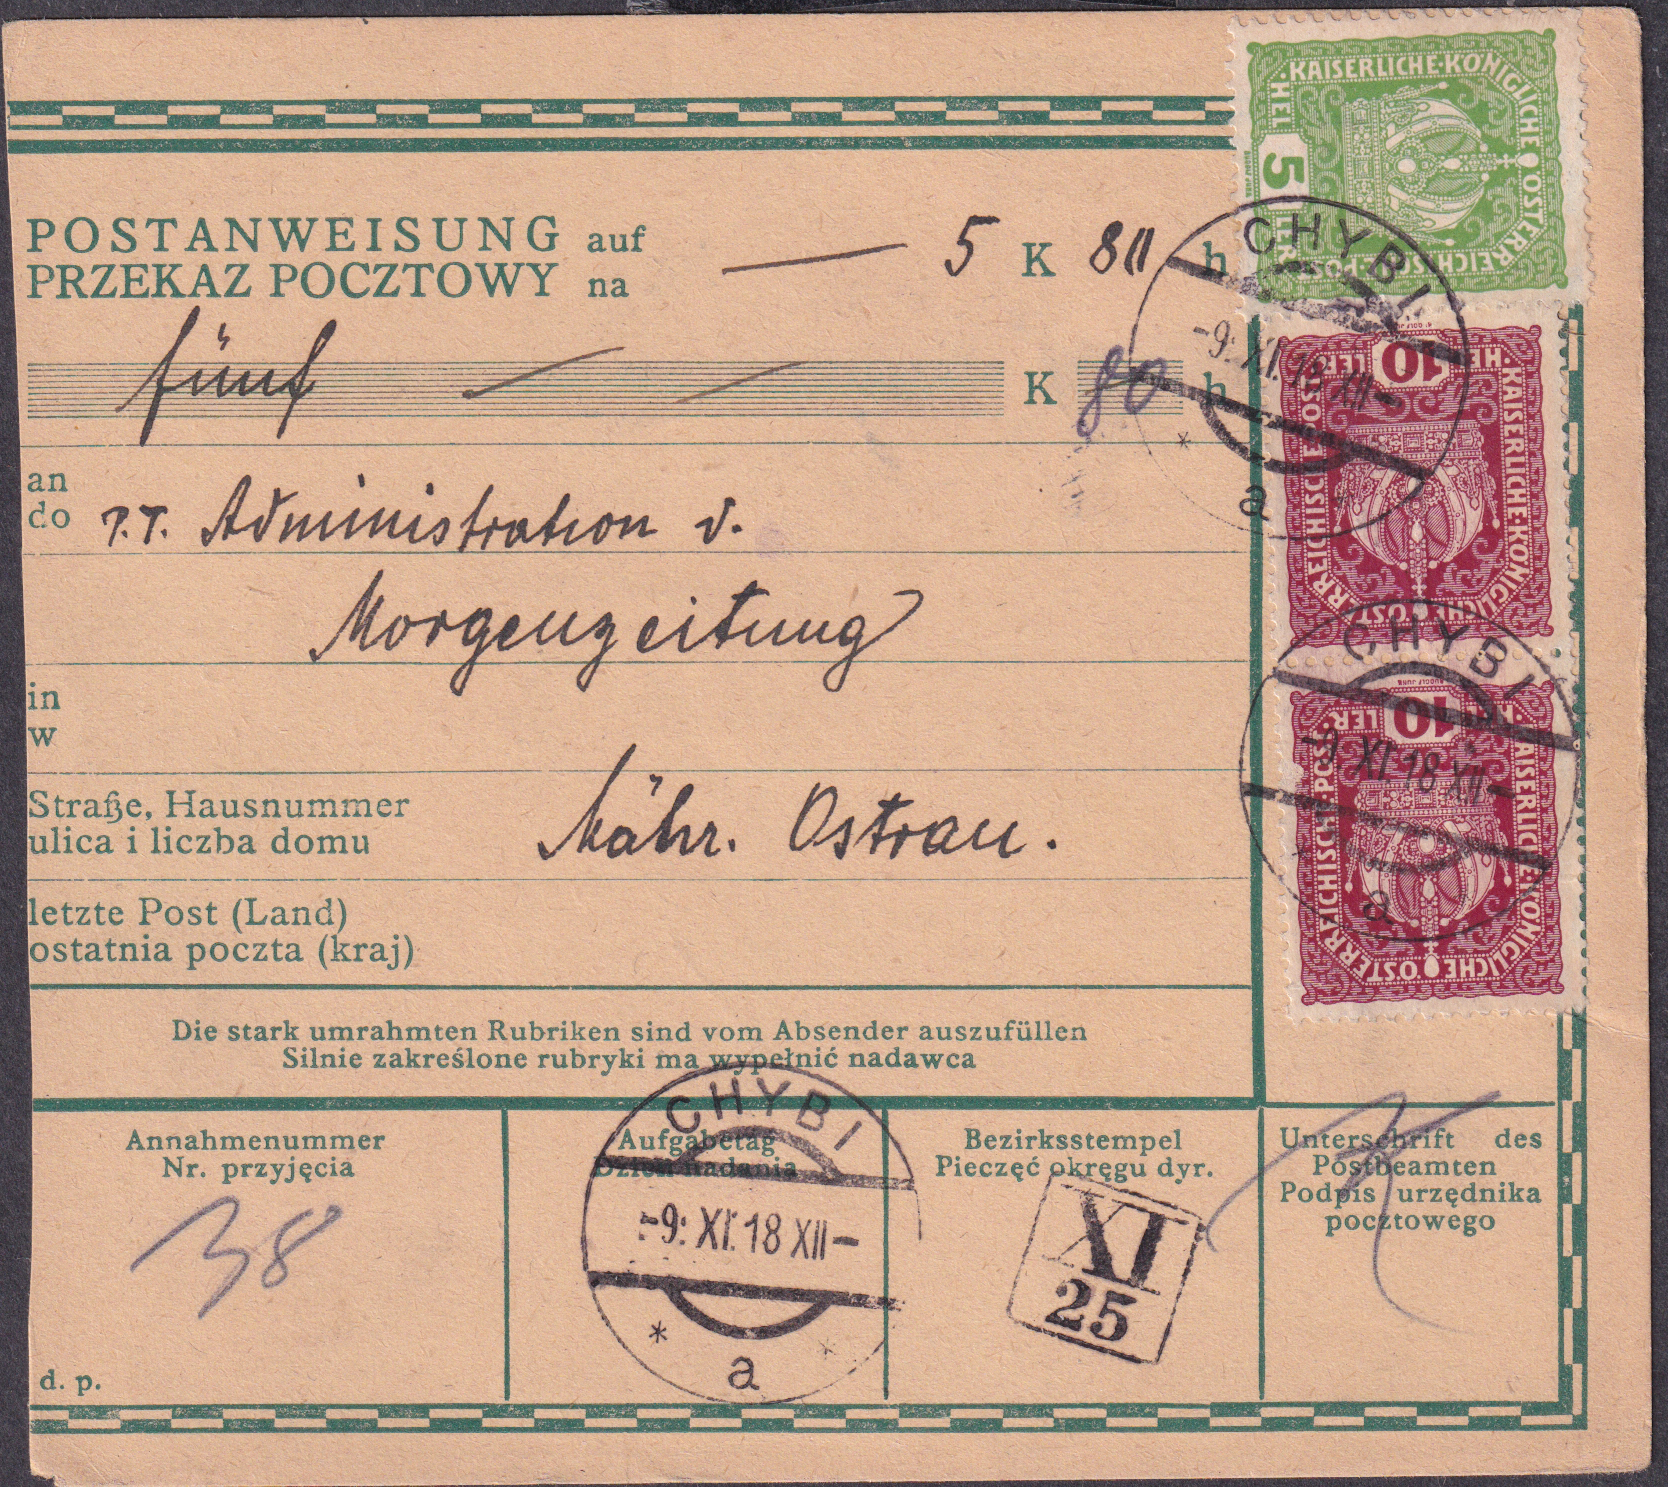 KAISERLICHE·KÖNIGLICHE ÖSTERREICHISCHE·POST·
5 HELLER
POSTANWEISUNG auf
PRZEKAZ POCZTOWY na
5 K 80 h
CHYBI
-9. XI. 18 XII-
a
fünf K 80 h
KAISERLICHE·KÖNIGLICHE ÖSTERREICHISCHE·POST·
10 HELLER
an
do
P.T. Administration d.
Morgenzeitung
in
w
CHYBI
-9. XI. 18 XII-
a
KAISERLICHE·KÖNIGLICHE ÖSTERREICHISCHE·POST·
10 HELLER
RUDOLF JUNK
Straße, Hausnummer
ulica i liczba domu
Mähr. Ostrau.
letzte Post (Land)
ostatnia poczta (kraj)
Die stark umrahmten Rubriken sind vom Absender auszufüllen
Silnie zakreślone rubryki ma wypełnić nadawca
Annahmenummer
Nr. przyjęcia
38
d. p.
Aufgabetag
Dzień nadania
CHYBI
-9. XI. 18 XII-
a
Bezirksstempel
Pieczęć okręgu dyr.
XI
25
Unterschrift des
Postbeamten
Podpis urzędnika
pocztowego